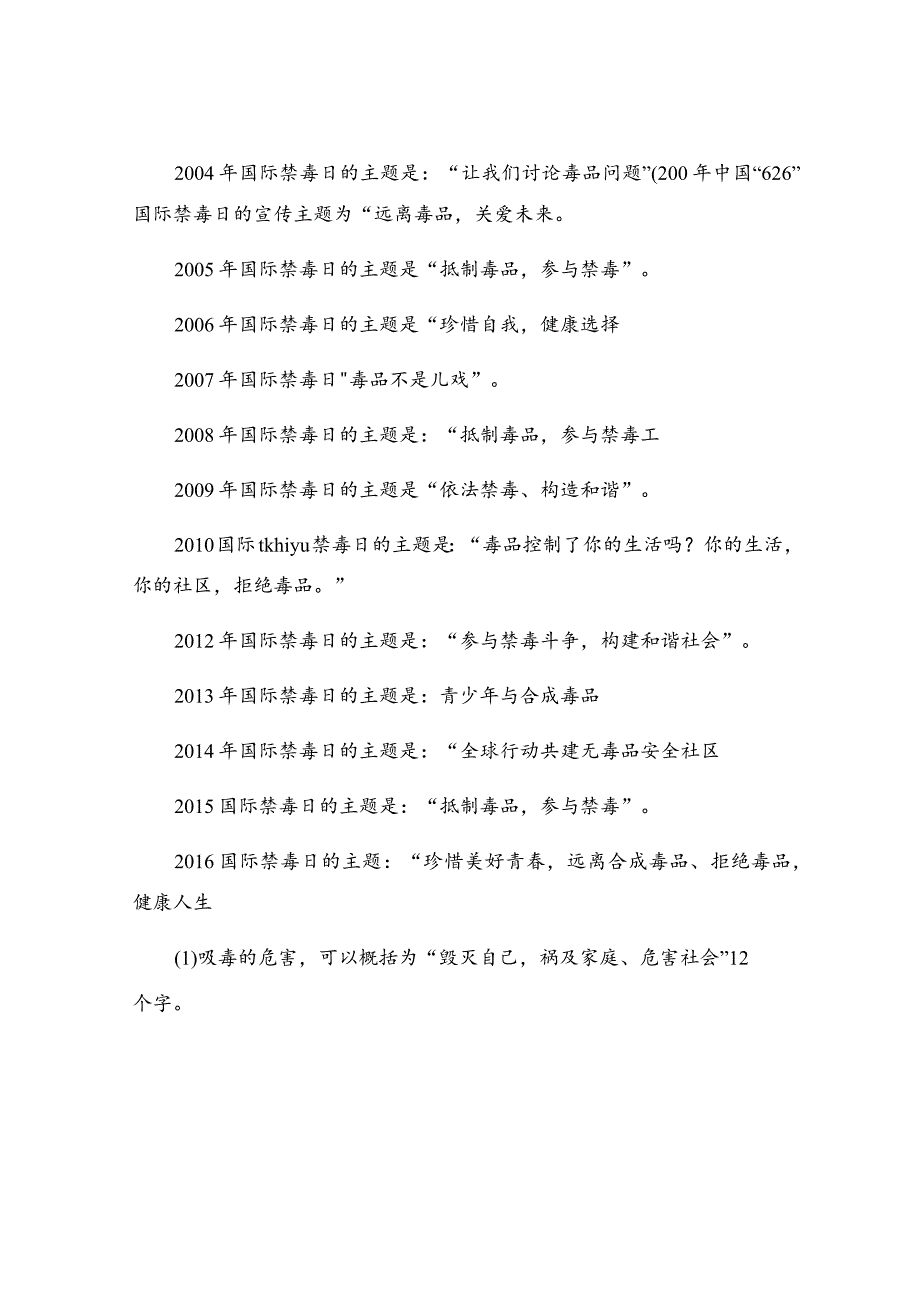 2004年国际禁毒日的主题是：“让我们讨论毒品问题”(200年中国“626”
国际禁毒日的宣传主题为“远离毒品，关爱未来。
2005年国际禁毒日的主题是“抵制毒品，参与禁毒”。
2006年国际禁毒日的主题是“珍惜自我，健康选择
2007年国际禁毒日"毒品不是儿戏”。
2008年国际禁毒日的主题是：“抵制毒品，参与禁毒工
2009年国际禁毒日的主题是“依法禁毒、构造和谐”。
2010国际tkhiyu禁毒日的主题是：“毒品控制了你的生活吗？你的生活，
你的社区，拒绝毒品。”
2012年国际禁毒日的主题是：“参与禁毒斗争，构建和谐社会”。
2013年国际禁毒日的主题是：青少年与合成毒品
2014年国际禁毒日的主题是：“全球行动共建无毒品安全社区
2015国际禁毒日的主题是：“抵制毒品，参与禁毒”。
2016国际禁毒日的主题：“珍惜美好青春，远离合成毒品、拒绝毒品，
健康人生
(1)吸毒的危害，可以概括为“毁灭自己，祸及家庭、危害社会”12
个字。